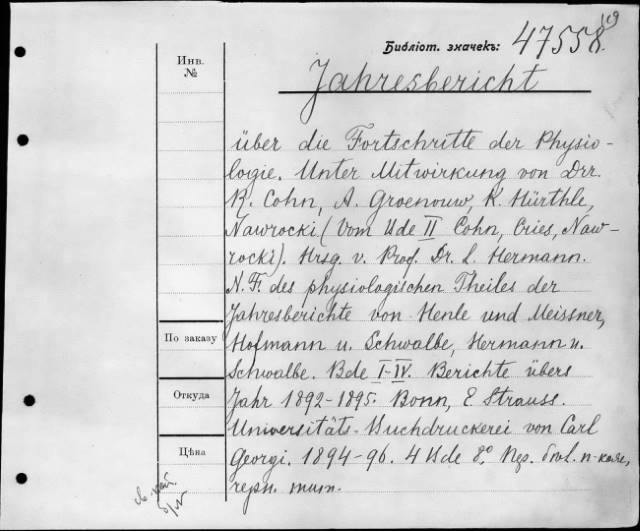 19
Библіот. значекъ: 47558.
Инв.
№
Jahresbericht
über die Fortschritte der Physio-
logie. Unter Mitwirkung von Drr.
R. Cohn, A. Groenouw, K. Hürthle,
Nawrocki (Vom Bde II Cohn, Cries, Naw-
rocki). Hrsg. v. Prof. Dr. L. Hermann.
N. F. des physiologischen Theiles der
Jahresberichte von Henle und Meissner,
По заказу
Hofmann u. Schwalbe, Hermann u.
Schwalbe. Bde I-IV. Berichte übers
Откуда
Jahr 1892-1895. Bonn, E. Strauss.
Universitäts-Buchdruckerei von Carl
Цѣна
Georgi. 1894-96. 4 Bde 8° Пер.
черн. тит.